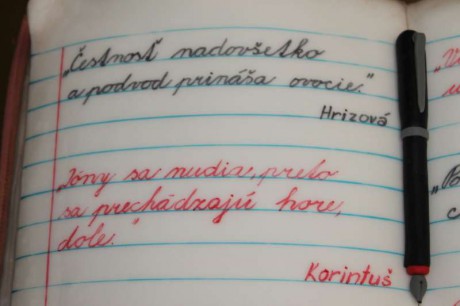 „Čestnosť nadovšetko
a podvod prináša ovocie."
Hrizová
„Ióny sa nudia, preto
sa prechádzajú hore,
dole."
Korintuš